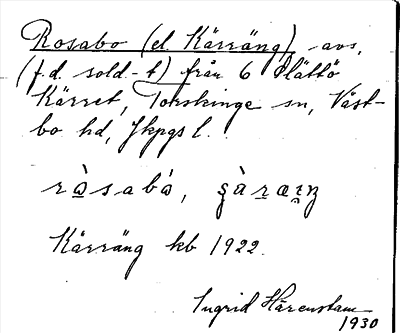 Rosabo (el. Kärräng), avs.
(f.d. sold.-t) från 6 Slättö
Kärret, Torskinge sn, Väst-
bo hd, Jkpgs l.
Kärräng kb 1922.
Ingrid Härenstam
1930